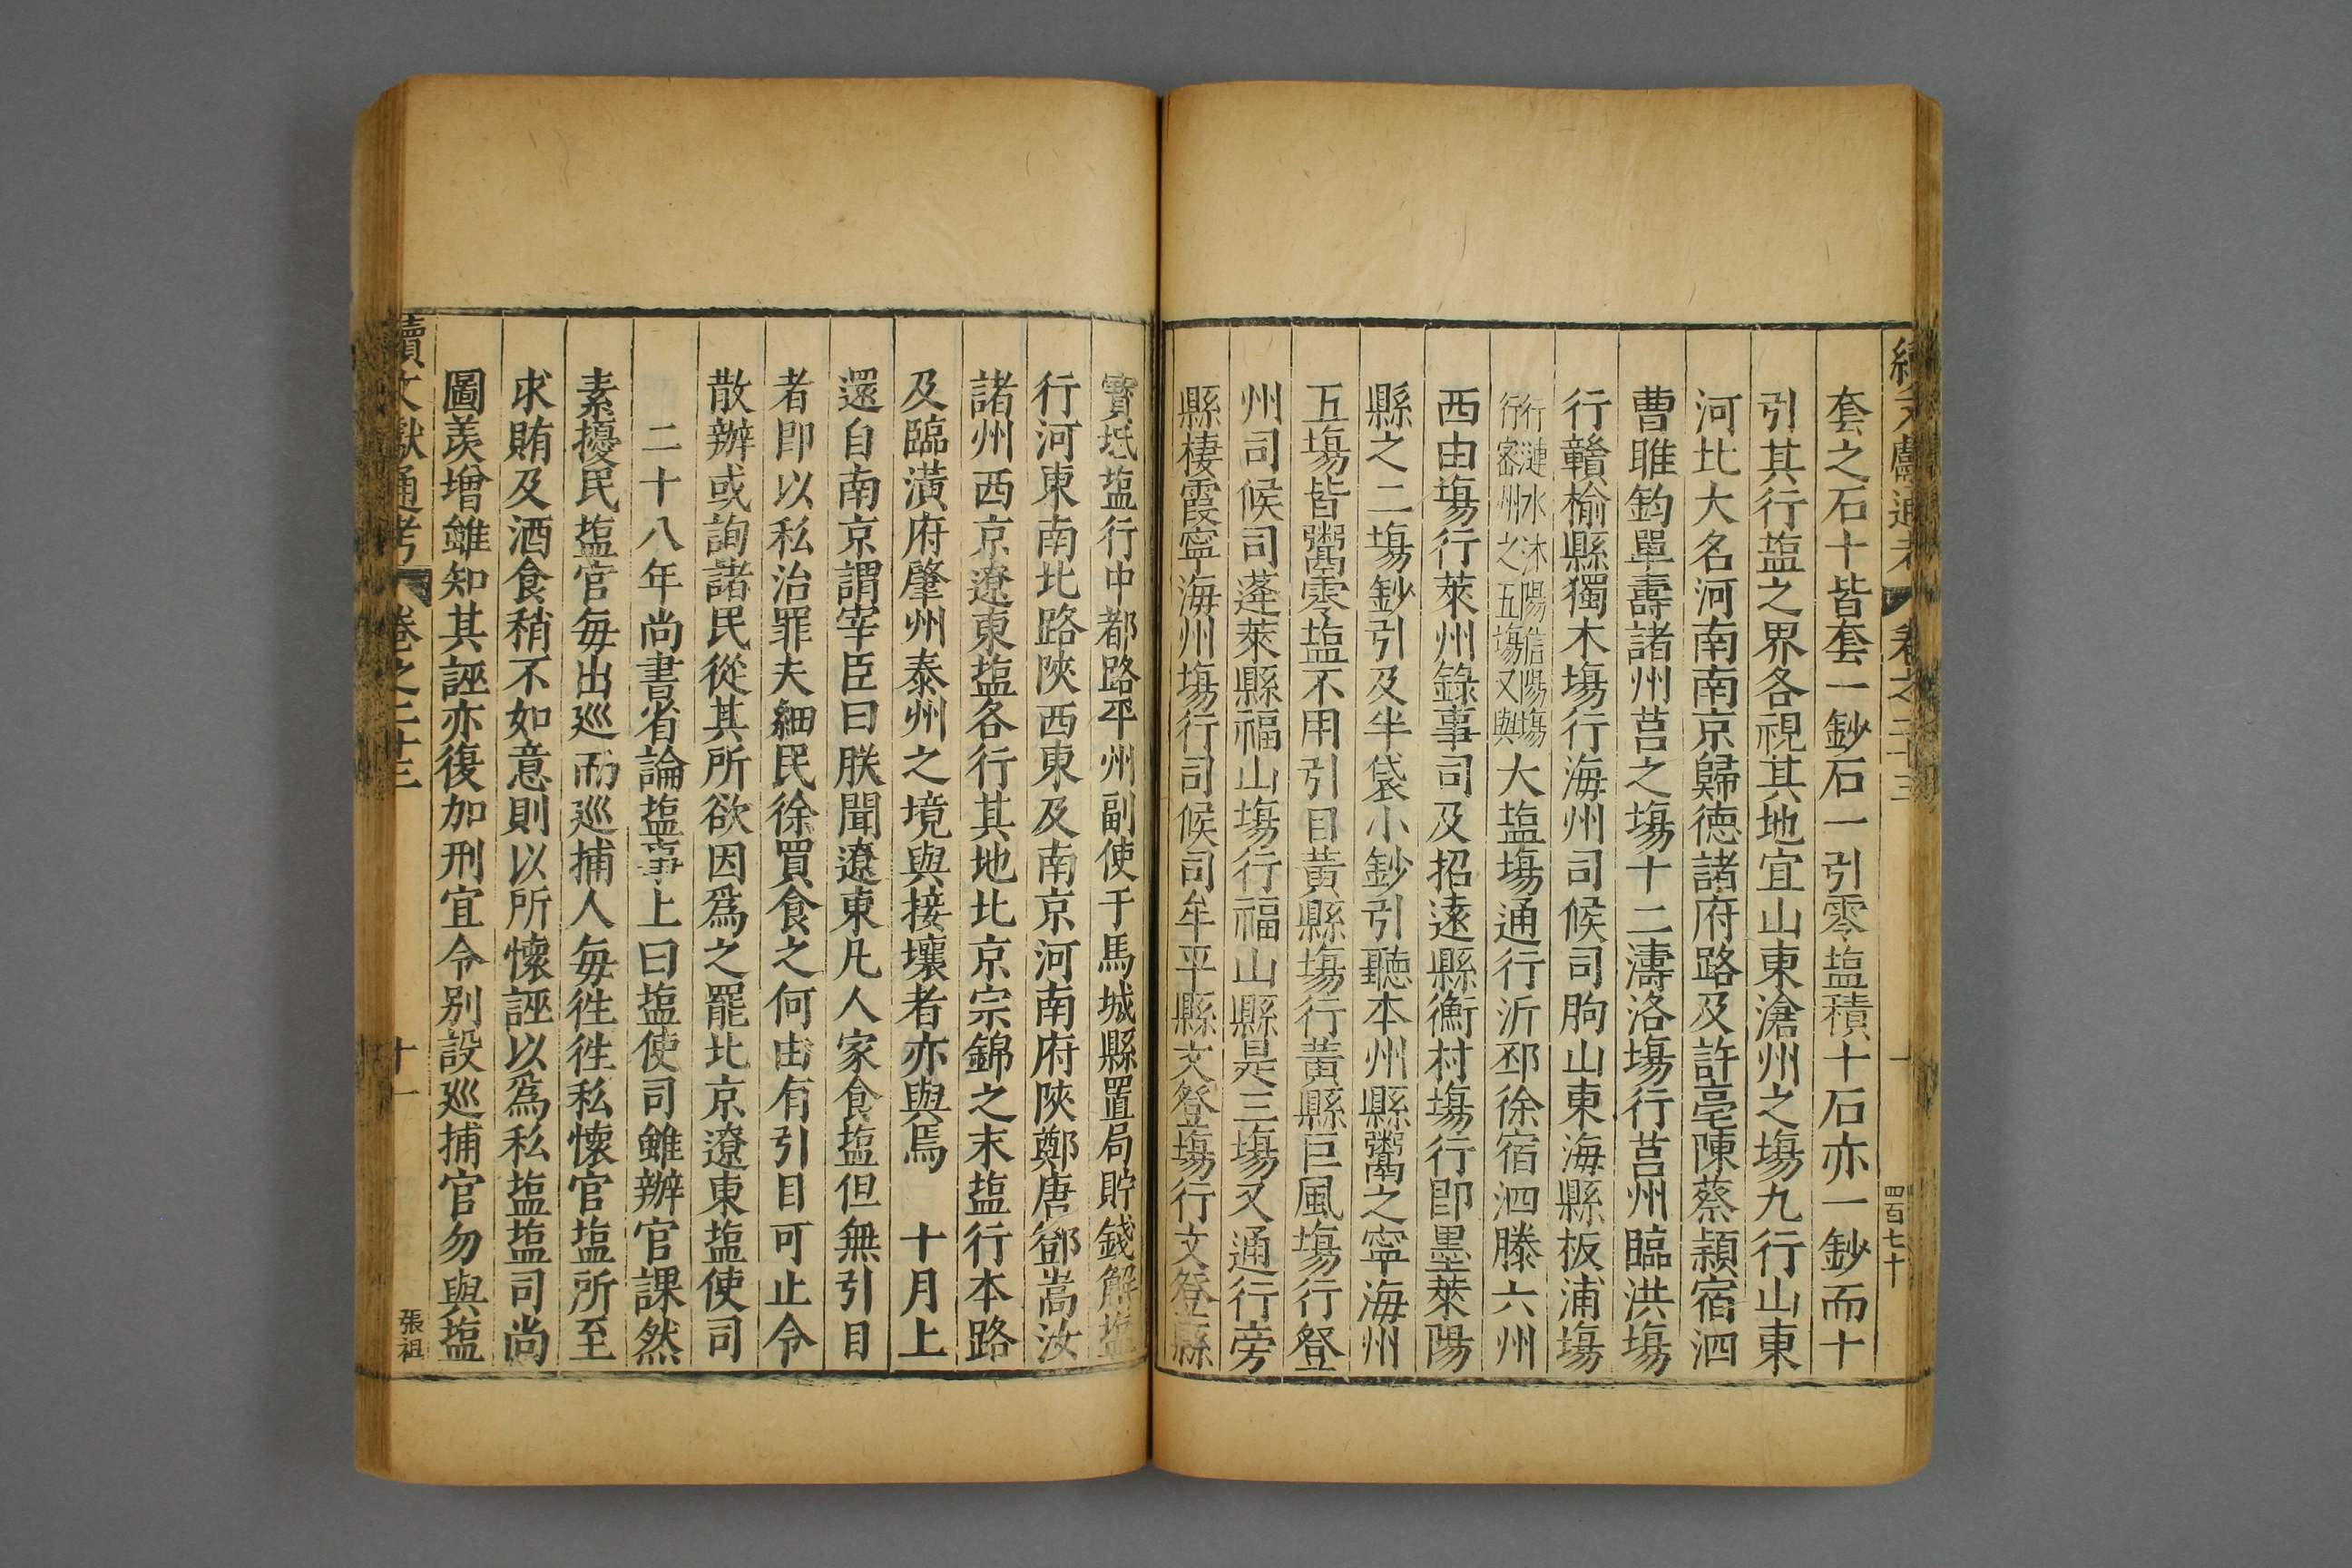 續文獻通考 卷之二十三 四百七十
套之石十皆套一鈔石一引零塩積十石亦一鈔而十
引其行塩之界各視其地宜山東滄州之塲九行山東
河北大名河南南京歸德諸府路及許亳陳蔡潁宿泗
曹睢鈞單壽諸州莒之塲十二濤洛塲行莒州臨洪塲
行贛榆縣獨木塲行海州司候司朐山東海縣板浦塲
行漣水沐陽信陽塲行密州之五塲又與大塩塲通行沂邳徐宿泗滕六州
西由塲行萊州錄事司及招遠縣衡村塲行即墨萊陽
縣之二塲鈔引及半袋小鈔引聽本州縣鬻之寧海州
五塲皆鬻零塩不用引目黃縣塲行黃縣巨風塲行登
州司候司蓬萊縣福山塲行福山縣是三塲又通行旁
縣棲霞寧海州塲行司候司牟平縣文登塲行文登縣
寶坻塩行中都路平州副使于馬城縣置局貯錢解塩
行河東南北路陝西東及南京河南府陝鄭唐鄧嵩汝
諸州西京遼東塩各行其地北京宗錦之末塩行本路
及臨潢府肇州泰州之境與接壤者亦與焉 十月上
還自南京謂宰臣曰朕聞遼東凡人家食塩但無引目
者即以私治罪夫細民徐買食之何由有引目可止令
散辦或詢諸民從其所欲因爲之罷北京遼東塩使司
二十八年尚書省論塩事上曰塩使司雖辦官課然
素擾民塩官每出巡而巡捕人每徃徃私懷官塩所至
求賄及酒食稍不如意則以所懷誣以爲私塩塩司尚
圖羨增雖知其誣亦復加刑宜令別設巡捕官勿與塩
續文獻通考 卷之二十三 十一 張祖